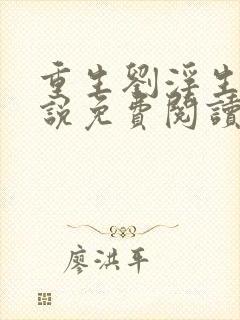 重生劉淫生
說免費閱讀
廖洪平